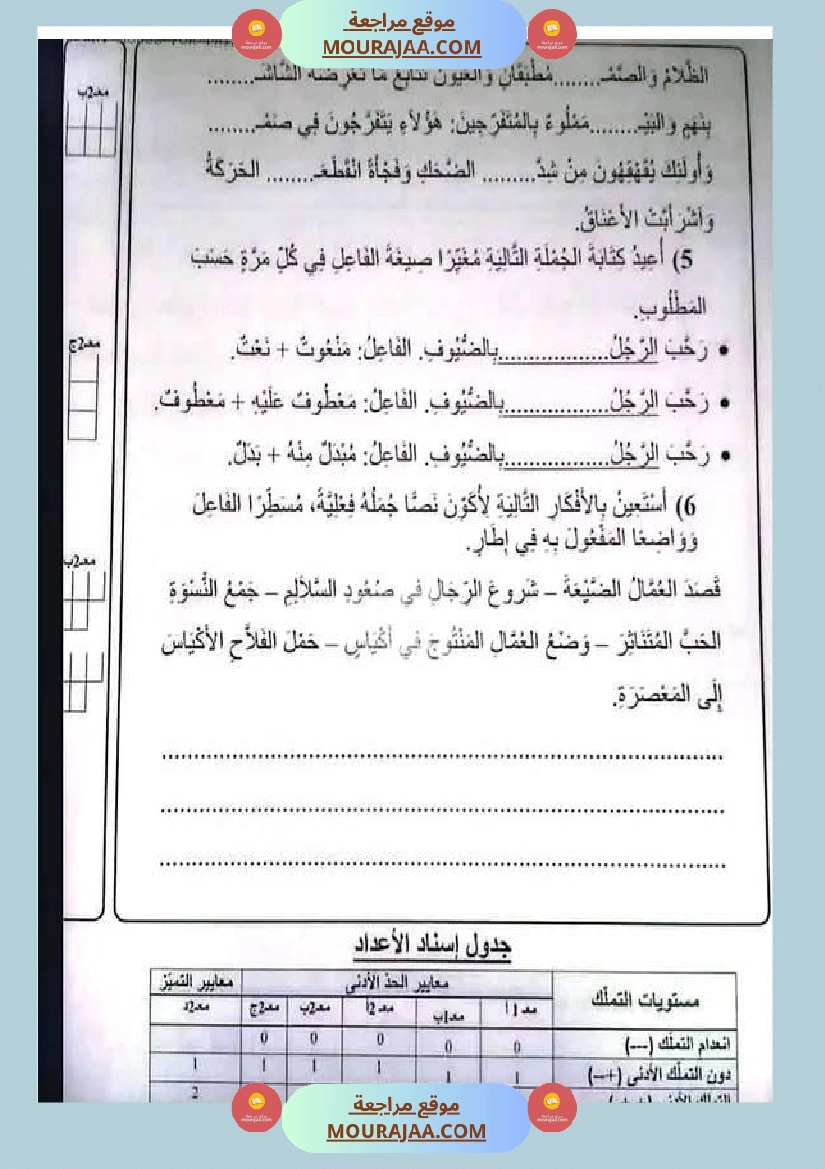 موقع مراجعة
MOURAJAA.COM
الظَّلَامُ وَالصَّمْـ........مُطْبَقَانِ وَالعُيُونُ تُتَابِعُ مَا تَعْرِضُهُ الشَّاشَـ........
بِنَهَمٍ وَالبَيْـ........مَمْلُوءٌ بِالمُتَفَرِّجِينَ: هَؤُلَاءِ يَتَفَرَّجُونَ فِي صَمْـ........
وَأُولَئِكَ يُقَهْقِهُونَ مِنْ شِدَّ......... الضَّحِكِ وَفَجْأَةً انْقَطَعَـ........ الحَرَكَةُ
وَاشْرَأَبَّتْ الأَعْنَاقُ.
5) أُعِيدُ كِتَابَةَ الجُمْلَةِ التَّالِيَةِ مُغَيِّرًا صِيغَةَ الفَاعِلِ فِي كُلِّ مَرَّةٍ حَسَبَ
المَطْلُوبِ.
• رَحَّبَ الرَّجُلُ...................بِالضُّيُوفِ. الفَاعِلُ: مَنْعُوتٌ + نَعْتٌ.
• رَحَّبَ الرَّجُلُ..................بِالضُّيُوفِ. الفَاعِلُ: مَعْطُوفٌ عَلَيْهِ + مَعْطُوفٌ.
• رَحَّبَ الرَّجُلُ..................بِالضُّيُوفِ. الفَاعِلُ: مُبْدَلٌ مِنْهُ + بَدَلٌ.
6) أَسْتَعِينُ بِالأَفْكَارِ التَّالِيَةِ لِأُكَوِّنَ نَصًّا جُمَلُهُ فِعْلِيَّةٌ، مُسَطِّرًا الفَاعِلَ
وَوَاضِعًا المَفْعُولَ بِهِ فِي إِطَارٍ.
قَصَدَ العُمَّالُ الضَّيْعَةَ – شُرُوعُ الرِّجَالِ فِي صُعُودِ السَّلَالِمِ – جَمْعُ النِّسْوَةِ
الحَبَّ المُتَنَاثِرَ – وَضْعُ العُمَّالِ المَنْتُوجَ فِي أَكْيَاسٍ – حَمْلَ الفَلَّاحِ الأَكْيَاسَ
إِلَى المَعْصَرَةِ.
................................................
................................................
................................................
معـ2ب
معـ2ج
معـ2ب
جدول إسناد الأعداد
مستويات التملّك معايير الحدّ الأدنى معايير التميّز
معـ1أ معـ1ب معـ2أ معـ2ب معـ2ج معـ2د
انعدام التملّك (---) 0 0 0 0 0
دون التملّك الأدنى (+--) 1 1 1 1 1 1
2
موقع مراجعة
MOURAJAA.COM